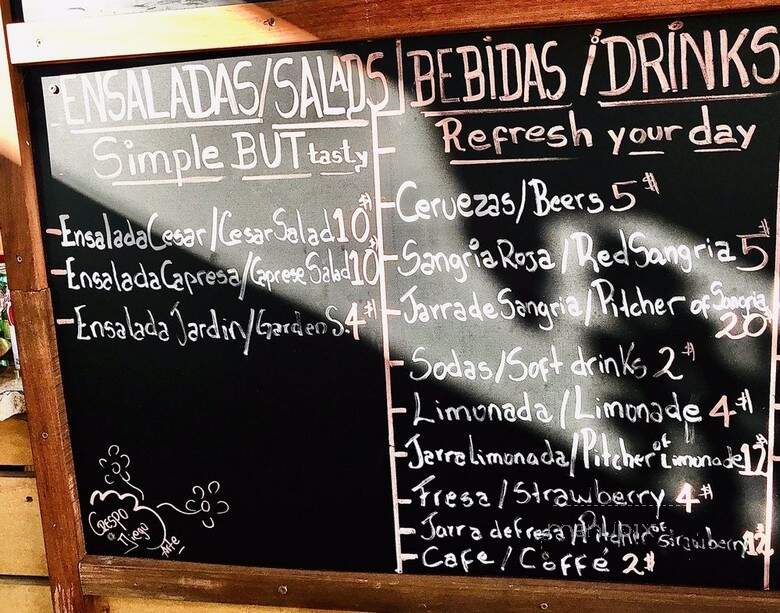 ENSALADAS/SALADS
Simple BUT tasty
-Ensalada Cesar/Cesar Salad 10$
-Ensalada Capresa/Caprese Salad 10$
-Ensalada Jardin/Garden S. 4$
CRESPO
Diego
Arte
BEBIDAS/DRINKS
Refresh your day
-Cervezas/Beers 5$
-Sangria Rosa/Red Sangria 5$
-Jarra de Sangria/Pitcher of Sangria 20$
-Sodas/Soft drinks 2$
-Limonada/Limonade 4$
-Jarra Limonada/Pitcher of Limonade 12$
-Fresa/Strawberry 4$
-Jarra de fresa/Pitcher of Strawberry 12$
-Cafe/Coffé 2$